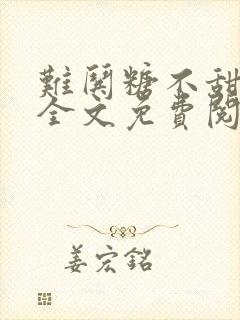 難關糖不甜
全文免費閱
姜宏銘